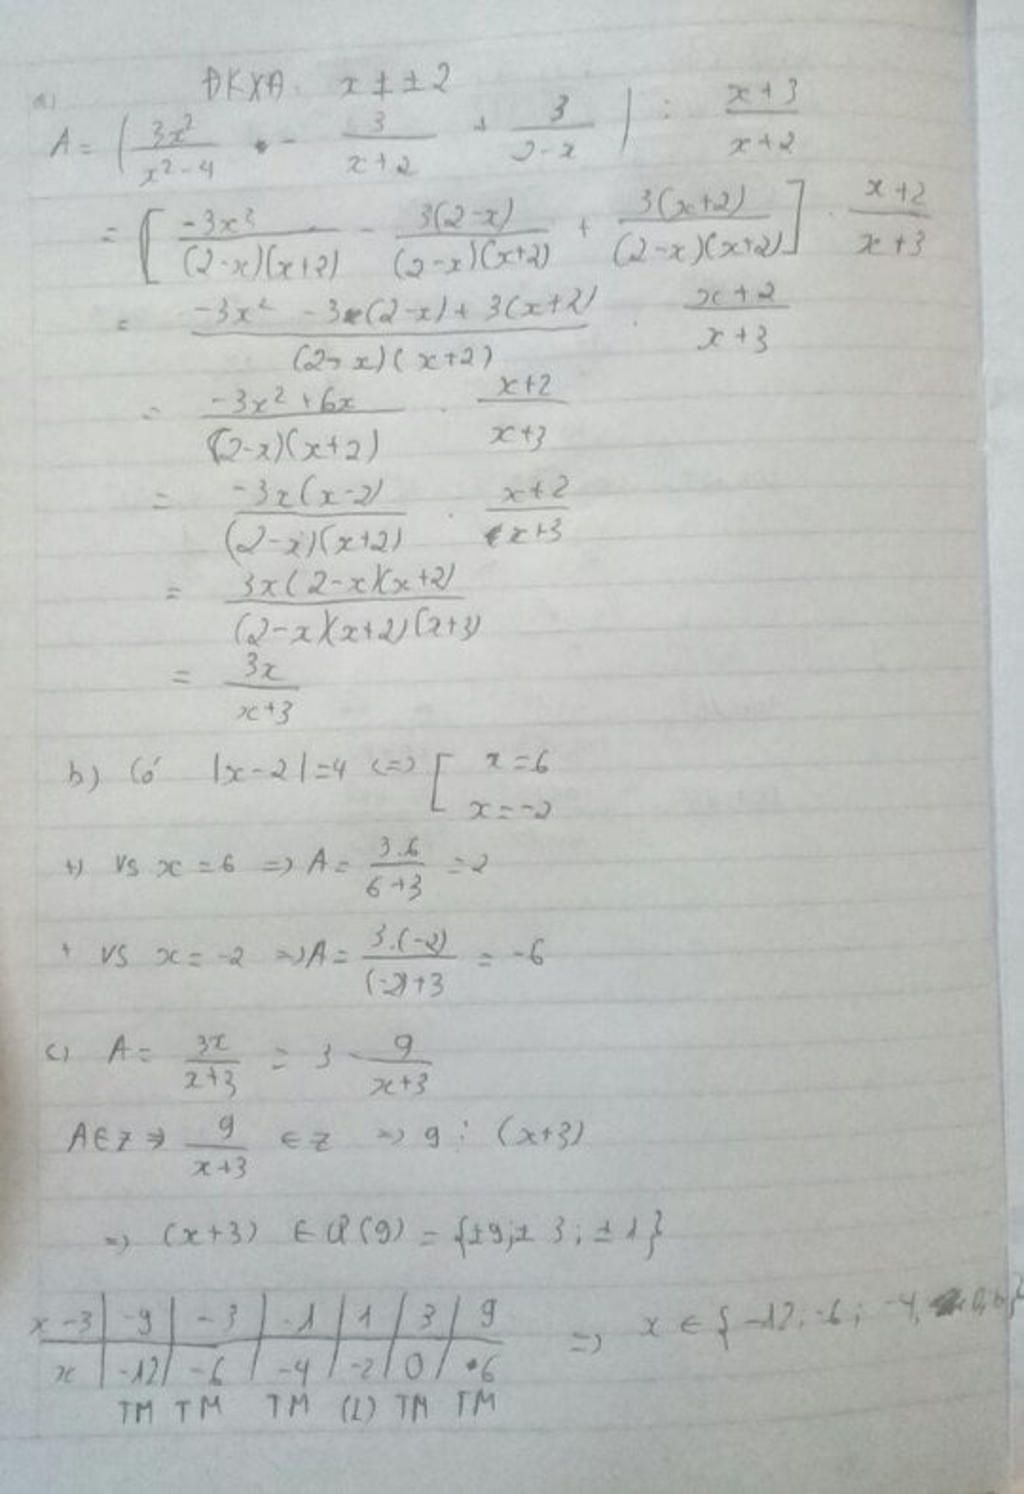 ĐKXĐ. x ≠ ± 2
a)
A = ( 3x²/(x²-4) - 3/(x+2) + 3/(2-x) ) : (x+3)/(x+2)
= [ -3x²/((2-x)(x+2)) - 3(2-x)/((2-x)(x+2)) + 3(x+2)/((2-x)(x+2)) ] . (x+2)/(x+3)
= (-3x² -3(2-x)+3(x+2))/((2-x)(x+2)) . (x+2)/(x+3)
= (-3x²+6x)/((2-x)(x+2)) . (x+2)/(x+3)
= -3x(x-2)/((2-x)(x+2)) . (x+2)/(x+3)
= 3x(2-x)(x+2)/((2-x)(x+2)(x+3))
= 3x/(x+3)
b) Có |x-2|=4 <=> [ x=6
x=-2
+) vs x=6 => A= 3.6/(6+3) =2
+ vs x=-2 => A= 3.(-2)/((-2)+3) = -6
c) A= 3x/(x+3) = 3 - 9/(x+3)
A∈Z => 9/(x+3) ∈ Z => 9 ⋮ (x+3)
=> (x+3) ∈ Ư(9) = {±9;± 3; ±1}
x-3 | -9 | -3 | -1 | 1 | 3 | 9
x | -12 | -6 | -4 | -2 | 0 | 6
TM TM TM (L) TM TM
=> x ∈ { -12, -6; -4,